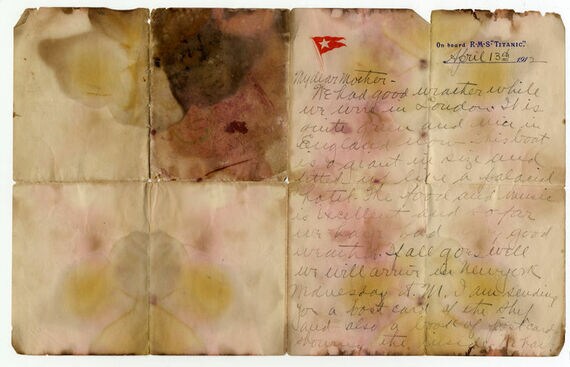 On board R.M.S "TITANIC."
April 13th 1912
My dear Mother-
We had good weather while
we were in London. It is
quite green and nice in
England now. This boat
is a giant in size and
fitted up like a palacial
hotel. The food and music
is excellent and so far
we have had good
weather. If all goes well
we will arrive in New York
Wednesday A.M. I am sending
you a post card of the ship
and also a book of postcards
showing the inside